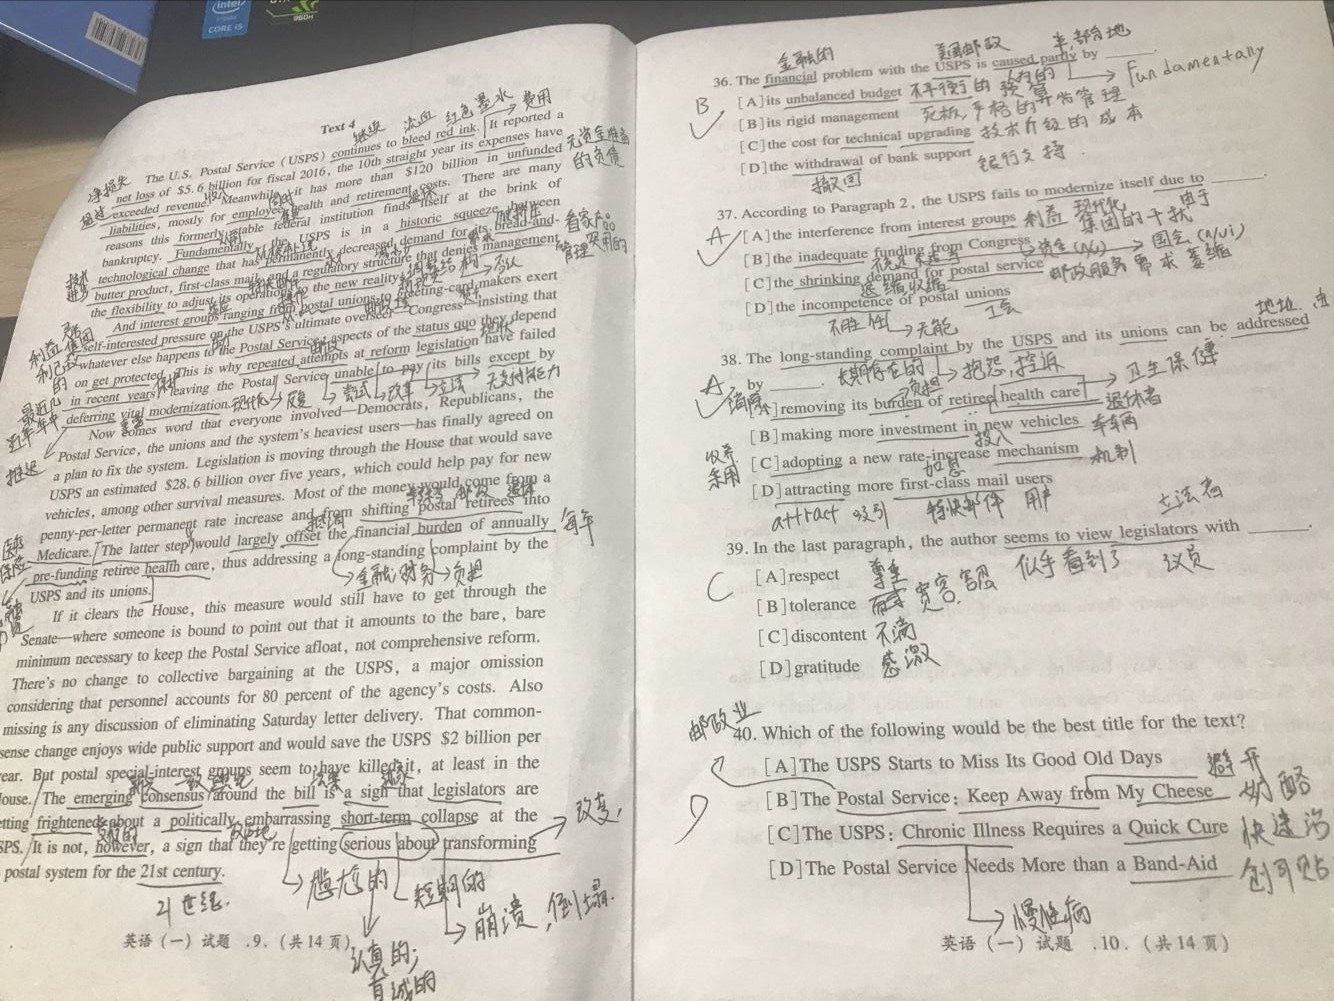 intel
inside
CORE i5
960M
Text 4
继续 流血 红色墨水 费用
The U.S. Postal Service (USPS) continues to bleed red ink. It reported a
净损失
net loss of $5.6 billion for fiscal 2016, the 10th straight year its expenses have
无资金准备的负债
超过
exceeded revenue. Meanwhile, it has more than $120 billion in unfunded
liabilities, mostly for employee health and retirement costs. There are many
reasons this formerly stable federal institution finds itself at the brink of
bankruptcy. Fundamentally, the USPS is in a historic squeeze between
technological change that has permanently decreased demand for its bread-and-
看家产品
管理 实用的
butter product, first-class mail, and a regulatory structure that denies management
否认
the flexibility to adjust its operations to the new reality.
And interest groups ranging from postal unions to greeting-card makers exert
利益集团
self-interested pressure on the USPS's ultimate overseer—Congress—insisting that
利己的
whatever else happens to the Postal Service, aspects of the status quo they depend
on get protected. This is why repeated attempts at reform legislation have failed
最近几年
近年中
in recent years, leaving the Postal Service unable to pay its bills except by
deferring vital modernization.
现代化 反复 尝试 改革 立法 无支付能力
推迟
Now comes word that everyone involved—Democrats, Republicans, the
Postal Service, the unions and the system's heaviest users—has finally agreed on
a plan to fix the system. Legislation is moving through the House that would save
USPS an estimated $28.6 billion over five years, which could help pay for new
vehicles, among other survival measures. Most of the money would come from a
penny-per-letter permanent rate increase and from shifting postal retirees into
Medicare. The latter step would largely offset the financial burden of annually
每年
pre-funding retiree health care, thus addressing a long-standing complaint by the
金融,财务 负担
USPS and its unions.
If it clears the House, this measure would still have to get through the
Senate—where someone is bound to point out that it amounts to the bare, bare
minimum necessary to keep the Postal Service afloat, not comprehensive reform.
There's no change to collective bargaining at the USPS, a major omission
considering that personnel accounts for 80 percent of the agency's costs. Also
missing is any discussion of eliminating Saturday letter delivery. That common-
sense change enjoys wide public support and would save the USPS $2 billion per
ear. But postal special-interest groups seem to have killed it, at least in the
ouse. The emerging consensus around the bill is a sign that legislators are
etting frightened about a politically embarrassing short-term collapse at the
改变
SPS. It is not, however, a sign that they're getting serious about transforming
postal system for the 21st century.
21世纪.
尴尬的 短期的 崩溃,倒塌.
认真的;
真诚的
英语(一)试题 .9.(共14页)
金融的 美国邮政 部分地
36. The financial problem with the USPS is caused partly by ______.
fundamentary
B
[A]its unbalanced budget 不平衡的预算
[B]its rigid management 死板,严格的 管理
[C]the cost for technical upgrading 技术升级的成本
[D]the withdrawal of bank support 银行支持
撤回
37. According to Paragraph 2, the USPS fails to modernize itself due to ______.
现代化 由于
A
[A]the interference from interest groups 利益集团的干扰
[B]the inadequate funding from Congress 资金 国会
[C]the shrinking demand for postal service 邮政服务需求萎缩
退缩 收缩
[D]the incompetence of postal unions
不胜任 无能 工会
地址
38. The long-standing complaint by the USPS and its unions can be addressed
by ______.
长期存在的 抱怨,控诉 卫生保健
A
消除
[A]removing its burden of retiree health care
负担 退休者
[B]making more investment in new vehicles 车辆
投入
收养
采用
[C]adopting a new rate-increase mechanism 机制
[D]attracting more first-class mail users
attract 吸引 特快邮件 用户
立法者
39. In the last paragraph, the author seems to view legislators with ______.
似乎看到了 议员
C
[A]respect 尊重
[B]tolerance 宽容
[C]discontent 不满
[D]gratitude 感激
邮政业
40. Which of the following would be the best title for the text?
[A]The USPS Starts to Miss Its Good Old Days
避开
[B]The Postal Service: Keep Away from My Cheese 奶酪
[C]The USPS: Chronic Illness Requires a Quick Cure 快速治
[D]The Postal Service Needs More than a Band-Aid 创可贴
慢性病
英语(一)试题 .10.(共14页)